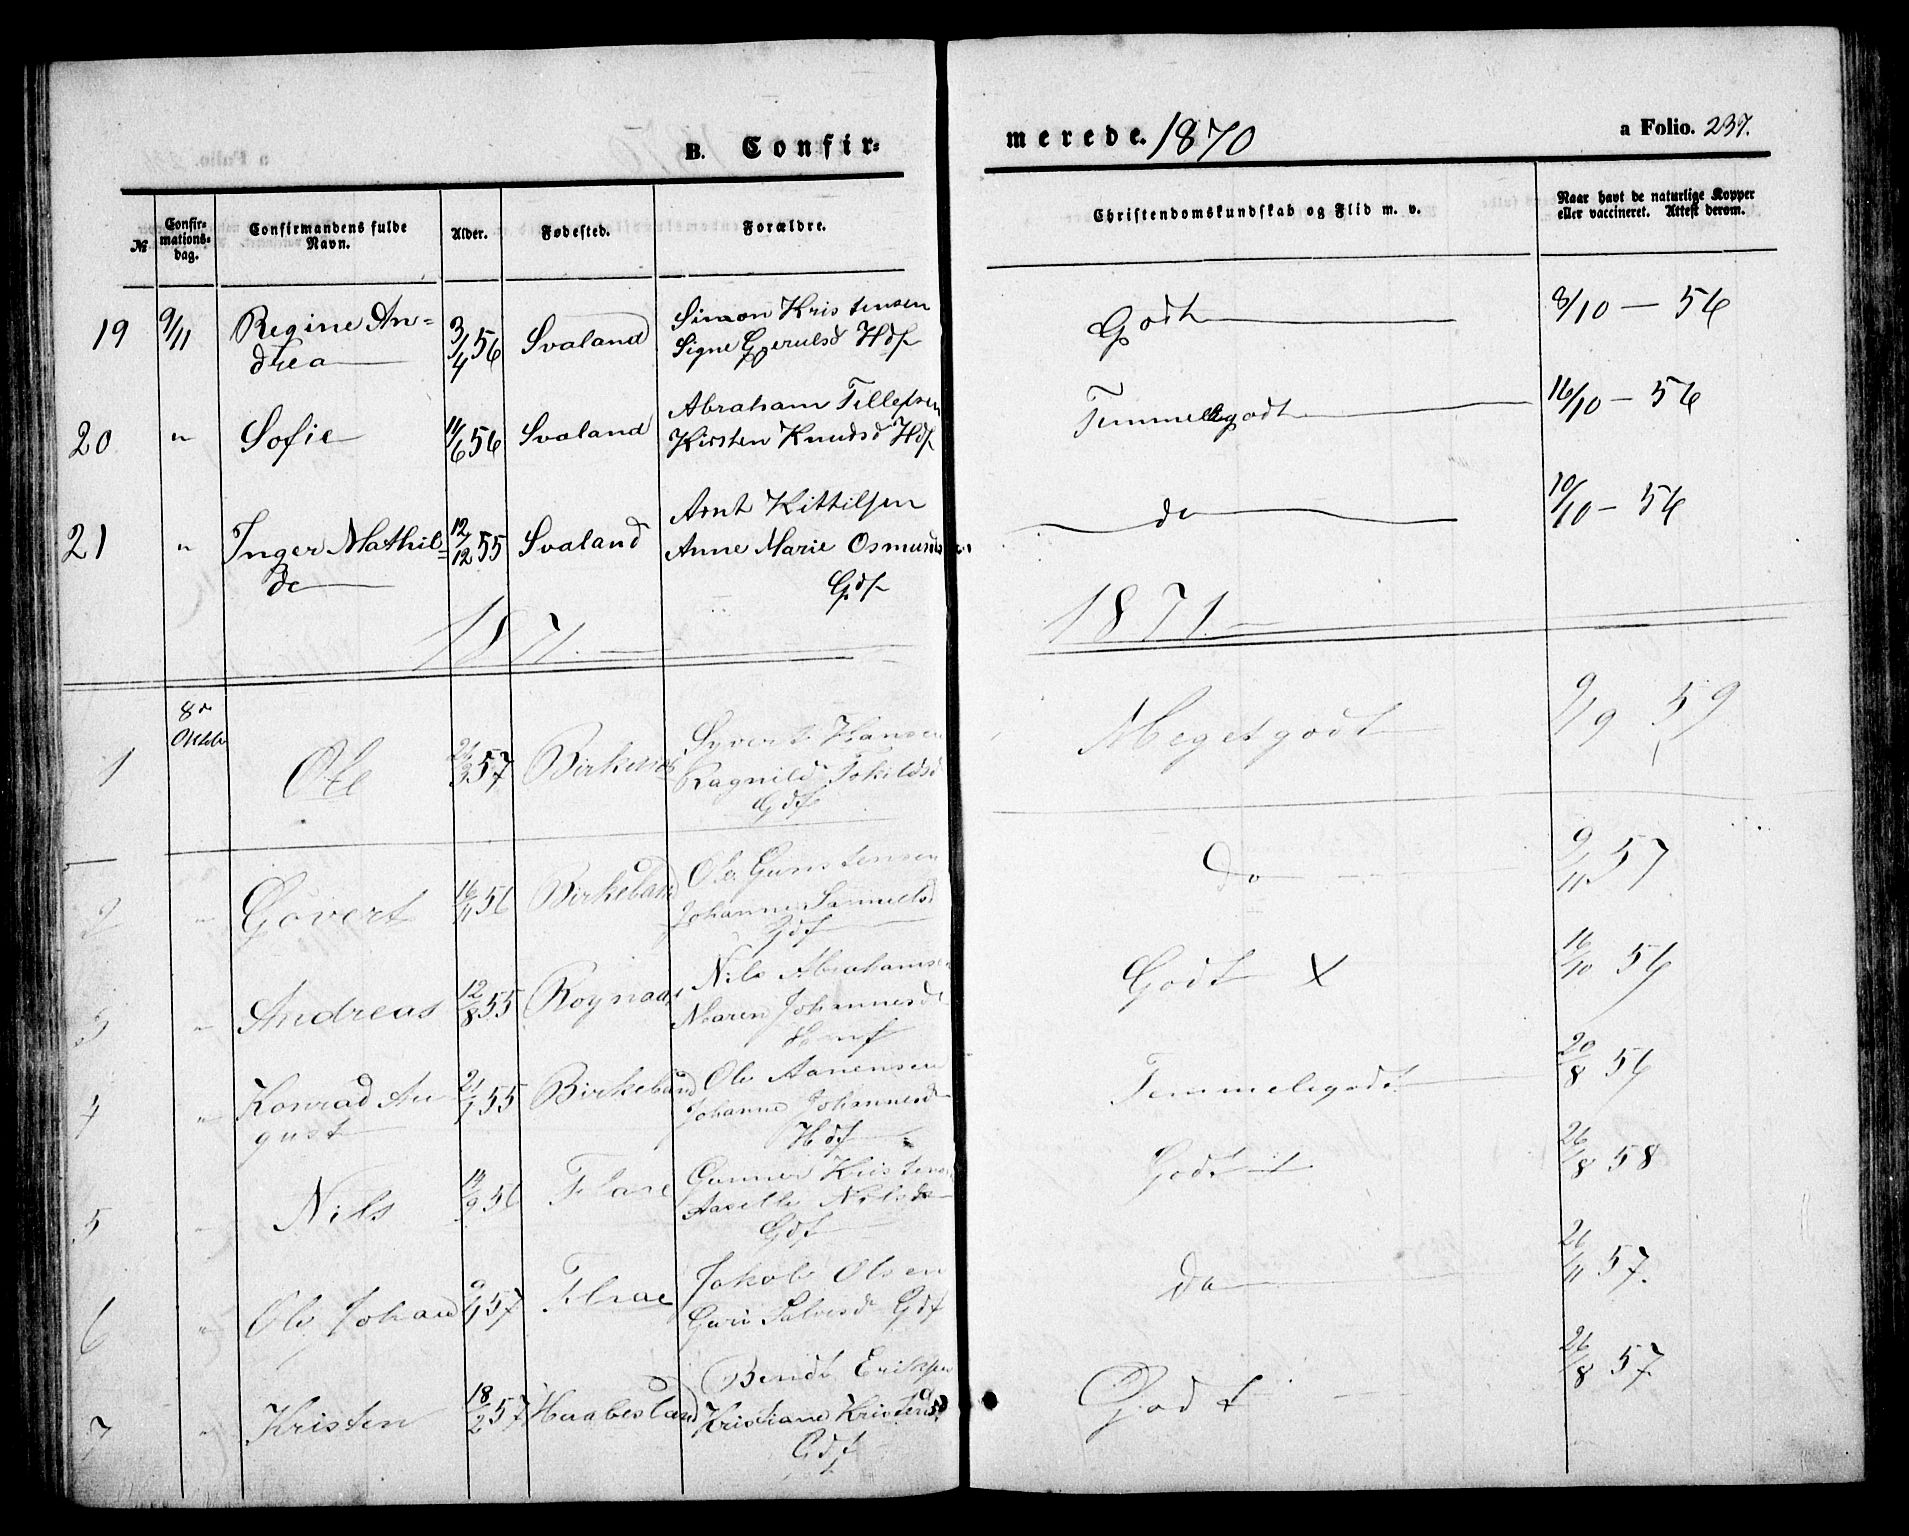 B. Confir=
merede. 1870
a Folio. 237.
№
Confir-
mations-
dag.
Confirmandens fulde
Navn.
Alder.
Fødested.
Forældre.
Christendomskundskab og Flid m. v.
Naar havt de naturlige Kopper
eller vaccineret. Attest derom.
19 9/11 Regine An=
drea 3/4 56 Svaland Simon Kristensen
Signe Gjerulsd Hdf Godt 8/10 — 56
20 " Sofie 11/6 56 Svaland Abraham Tellefsen
Kirsten Knudsd Hdf Temmelig godt 16/10 — 56
21 " Inger Mathil=
de 12/12 55 Svaland Arnt Kittilsen
Anne Marie Osmunds
Gdf do 10/10 — 56
1871. 1871.
1 8de Oktob Ole 57 Birkenes Syvert Hansen
Ragnild Tokildsd
Gdf Meget godt 9/9 59
2 " Govert 16/11 56 Birkeland Ole Gunstensen
Johanne Samuelsd
Gdf do 9/11 57
3 " Andreas 12/8 55 Roynaas Nils Abrahamsen
Maren Johannesd
Godt X 16/10 56
4 " Konrad Au
gust 21/1 55 Birkeland Ole Aanensen
Johanne Johannesd
Hdf Temmeligodt 20/8 56
5 " Nils 14/9 56 Flaae Gunner Kristens
Aaselle Nilsd
Gdf Godt 26/8 58
6 " Ole Johan 9/1 57 Flaae Jakob Olsen
Guri Salvesd Gdf do 26/11 57.
7 " Kristen 18/2 57 Haabesland Bendt Eriksen
Kristiane Kristensd
Gdf Godt 26/8 57.